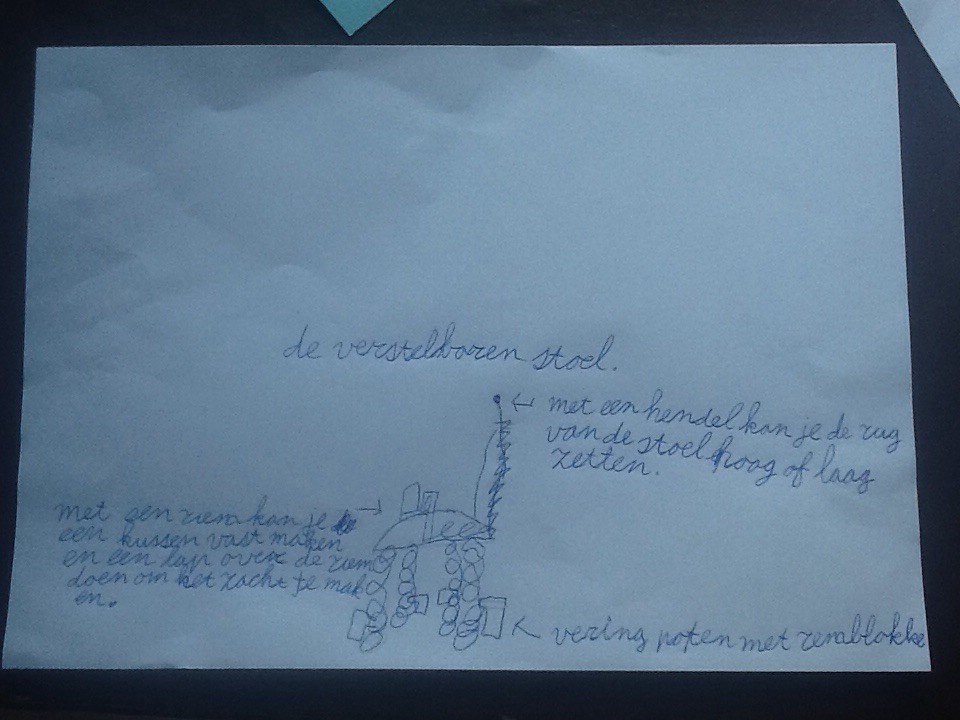 de verstelbaren stoel.
met een hendel kan je de rug
van de stoel hoog of laag
zetten.
met een riem kan je
een kussen vast maken
en een lap over de riem
doen om het zacht te mak
en.
vering poten met remblokke